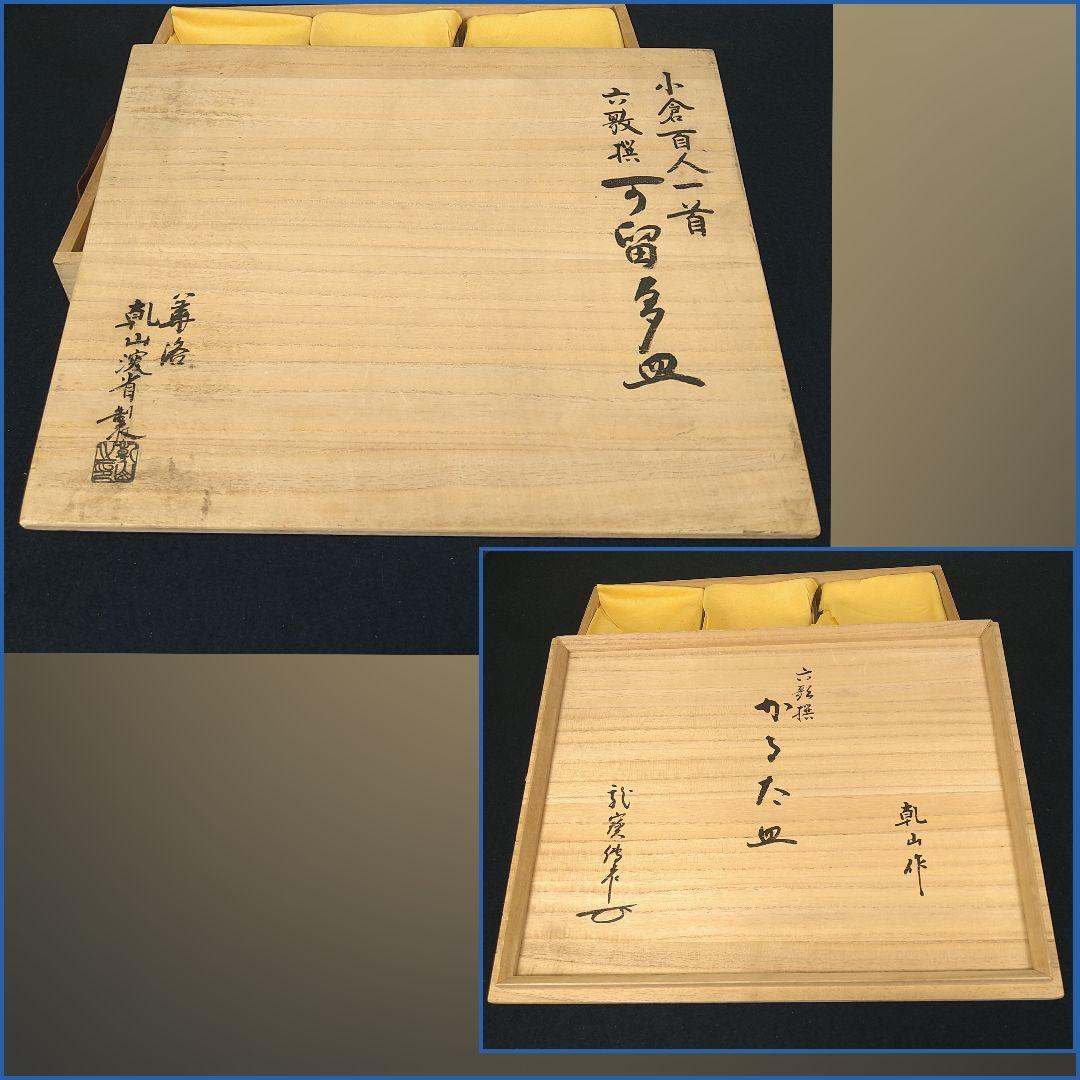 小倉百人一首
六歌撰
可留多皿
華洛
乾山窯省製
乾山作
六歌撰
かるた皿